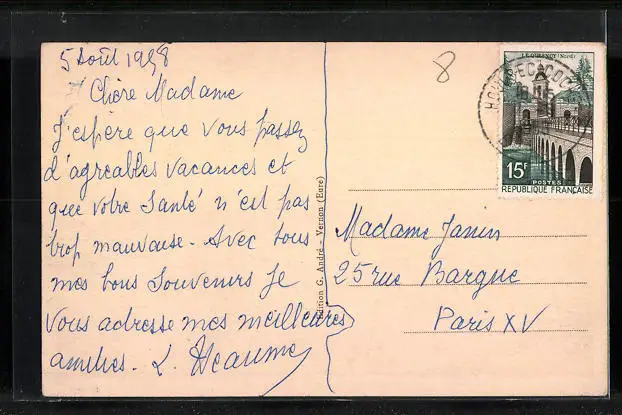 5 Août 1958
Chère Madame
J'espère que vous passez
d'agreables vacances et
que votre santé n'est pas
trop mauvaise. Avec tous
mes bons souvenirs je
vous adresse mes meilleures
amities. L. Heaume
8
Edition G. André - Vernon (Eure)
LE QUESNOY (Nord)
15F
POSTES
REPUBLIQUE FRANÇAISE
Madame Janin
25 rue Bargue
Paris XV